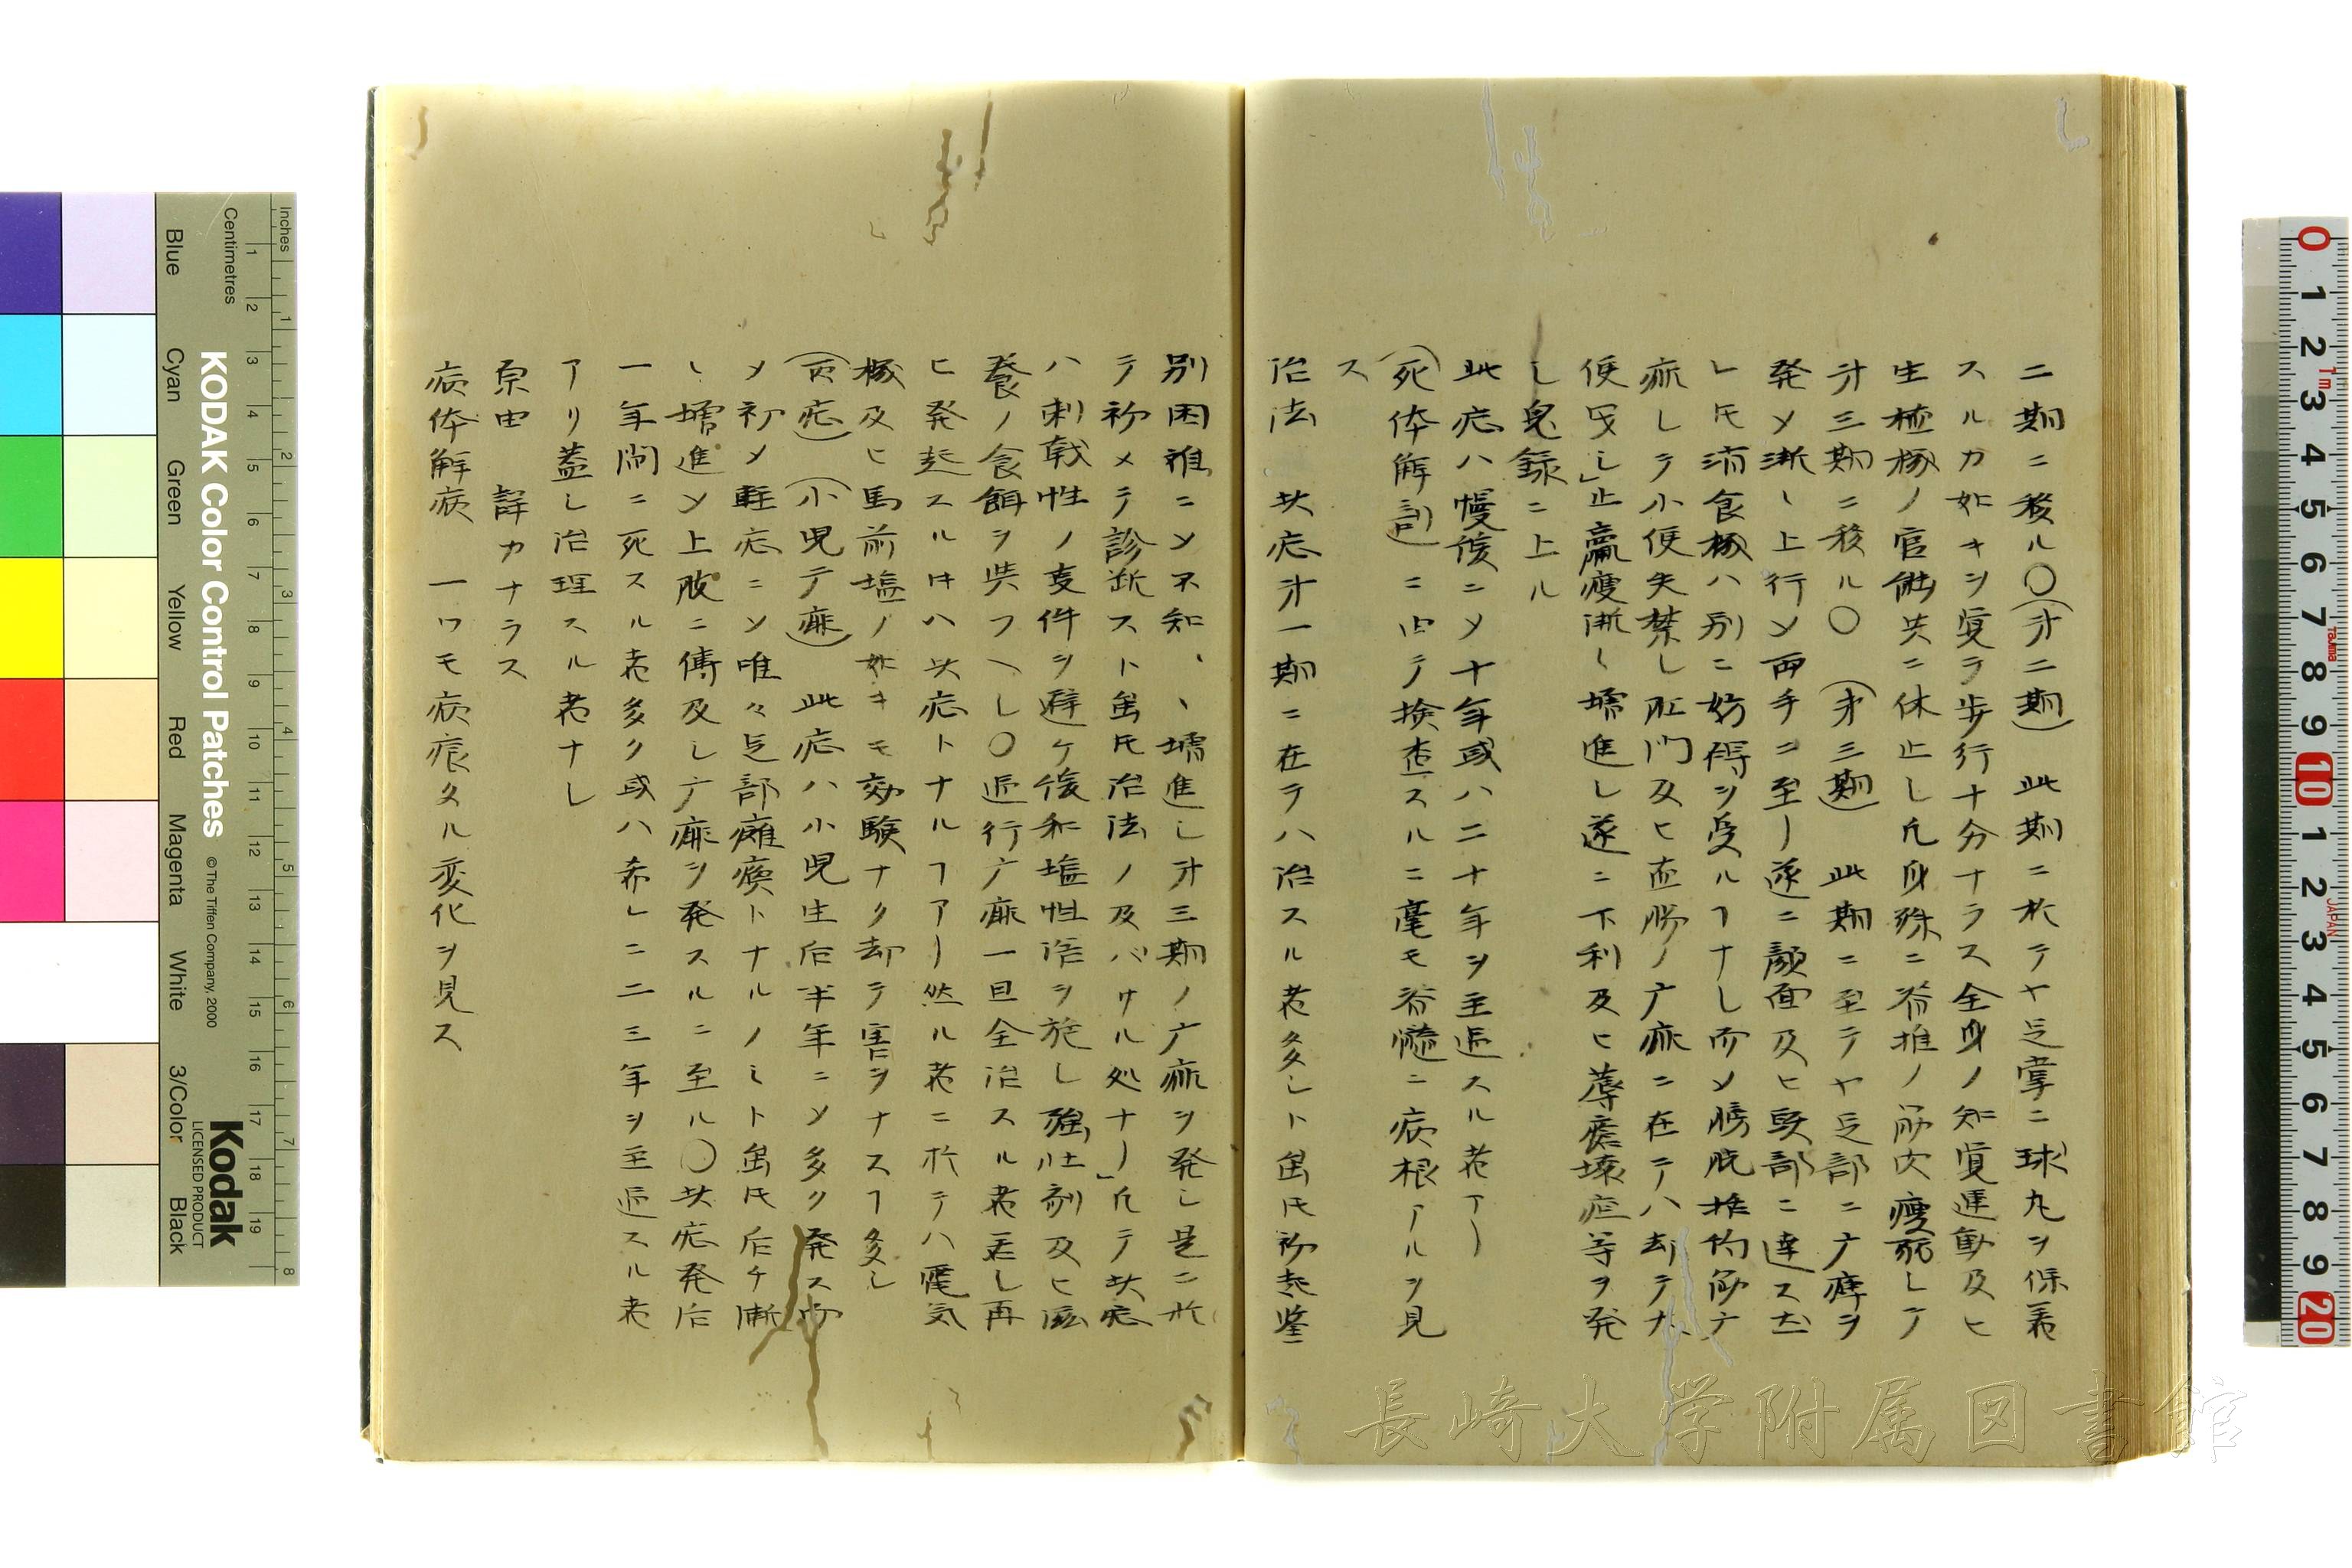 二期ニ移ル〇(才二期) 此期ニ於テヤ足掌ニ球丸ヲ保着
スルカ如キヲ覚ヲ歩行十分ナラス全身ノ知覚運動及ヒ
生植機ノ官能共ニ休止し凡身殊ニ脊推ノ筋肉痩削しテ
才三期ニ移ル〇 (才三期) 此期ニ至テヤ足部ニ广痺ヲ
発メ漸〻上行ソ両手ニ至リ遂ニ顔面及ヒ頭部ニ達ス
レ𪜈消食機ハ別ニ妨碍ヲ受ルヿナし而ソ膀胱括約筋
麻しテ小便失禁し肛門及ヒ直腸ノ广麻ニ在テハ却テ大
便牢し止羸痩漸〻増進し遂ニ下利及ヒ蓐瘡壊疽等ヲ発
し鬼録ニ上ル
此症ハ慢後ニソ十年或ハ二十年ヲ主迢スル者アリ
(死体解剖) ニ由テ撿査スルニ毫モ脊髄ニ病根アルヲ見
ス
治法 此症才一期ニ在テハ治スル者多しト虽𪜈初起鑒
別困難ニソ不知〻〻増進し才三期ノ广麻ヲ発し是ニ於
テ初メテ診断スト虽𪜈治法ノ及バサル処ナリ」凡テ此症
ハ刺戟性ノ事件ヲ避ケ後和塩性浴ヲ施し強壮剤及ヒ滋
養ノ食餌ヲ與フヘし〇逆行广麻一旦全治スル者若し再
ヒ発起スル𪜈ハ此症トナルヿアリ然ル者ニ於テハ電気
機及ヒ馬前塩ノ如キモ効験ナク却テ害ヲナスヿ多し
(𭁈症) (小児广麻) 此症ハ小児生后半年ニソ多ク発ス而
メ初メ軽症ニソ唯々足部癱瘓トナルノミト虽𪜈后チ漸
〻増進ソ上肢ニ傳及し广麻ヲ発スルニ至ル〇此症発后
一年間ニ死スル者多ク或ハ希レニ二三年ヲ主迢スル者
アリ蓋し治理スル者ナし
原由 詳カナラス
病体解病 一ツモ病痕タル変化ヲ見ス
長崎大学附属図書館
KODAK Color Control Patches
© The Tiffen Company, 2000
Kodak
LICENSED PRODUCT
Inches
Centimetres
Blue Cyan Green Yellow Red Magenta White 3/Color Black